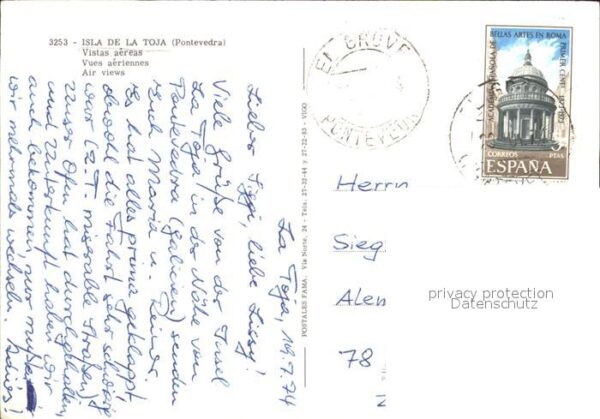 3253 - ISLA DE LA TOJA (Pontevedra)
Vistas aéreas
Vues aériennes
Air views
La Toja, 19.7.74
Lieber Siggi, liebe Sissy!
Viele Grüße von der Insel
La Toja in der Nähe von
Pontevedra (Galicien) senden
euch Maria u. Reiner.
Es hat alles prima geklappt,
obwohl die Fahrt sehr schwierig
war (z.T. miserable Straßen)
Unser Ofen hat durchgehalten,
und Unterkunft haben wir
auch bekommen, nur mußten
wir mehrmals wechseln.
POSTALES FAMA. Via Norte, 24 - Tels. 27-32-44 y 27-22-83 - VIGO
EL GROVE
PONTEVEDRA
ACADEMIA ESPAÑOLA DE BELLAS ARTES EN ROMA
PRIMER CENT. 1873-1973
CORREOS PTAS
ESPAÑA
Herrn
Sieg
Alen
78
privacy protection
Datenschutz